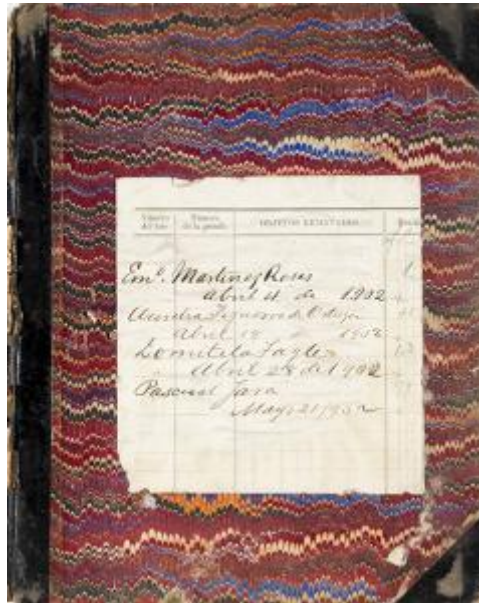 Número del lote Número de la prenda OBJETOS REMATADOS
Emo. Martinez Rosas
Abril 4 de 1902
Aurelia Figueroa de Ortega
Abril 18 1902
Domitila Tagle
Abril 28 de 1902
Pascual Jara
Mayo 2/1902